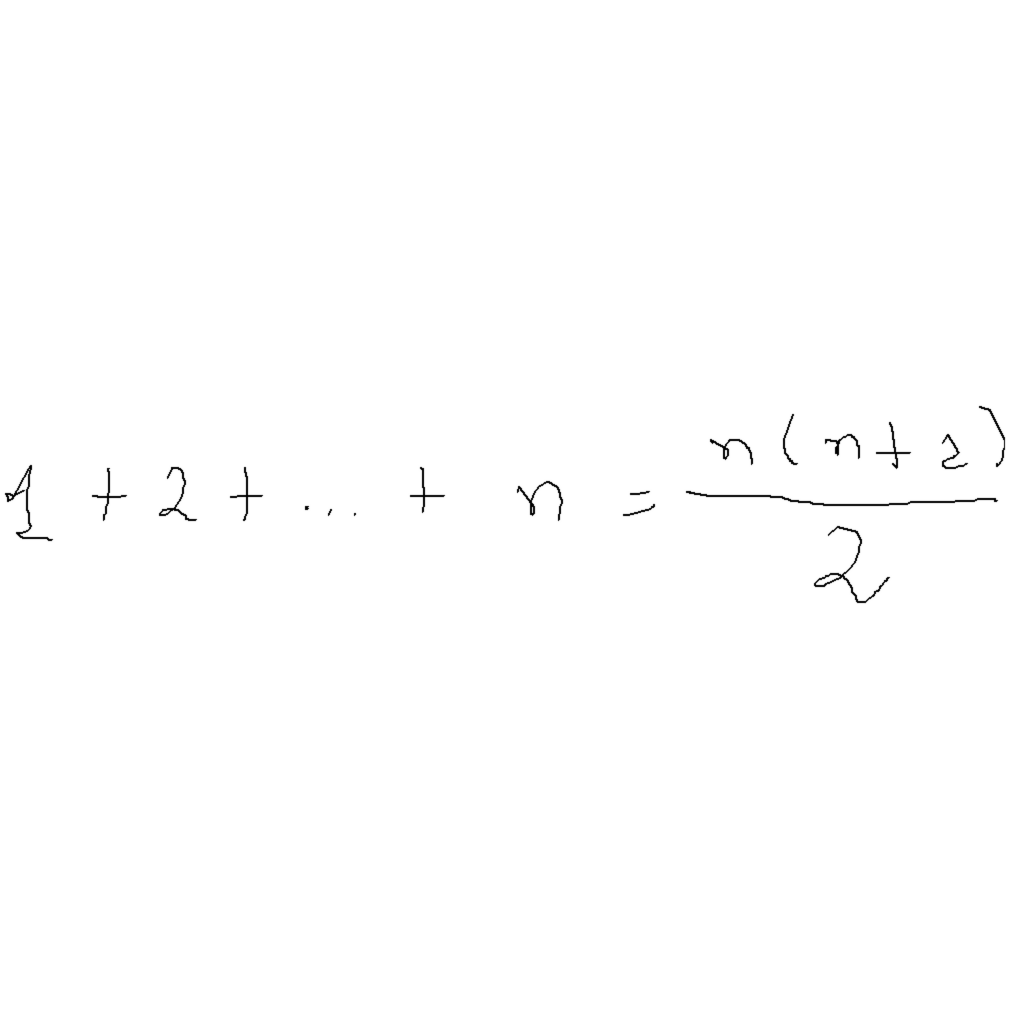 1 + 2 + ... + n = n(n+2)/2